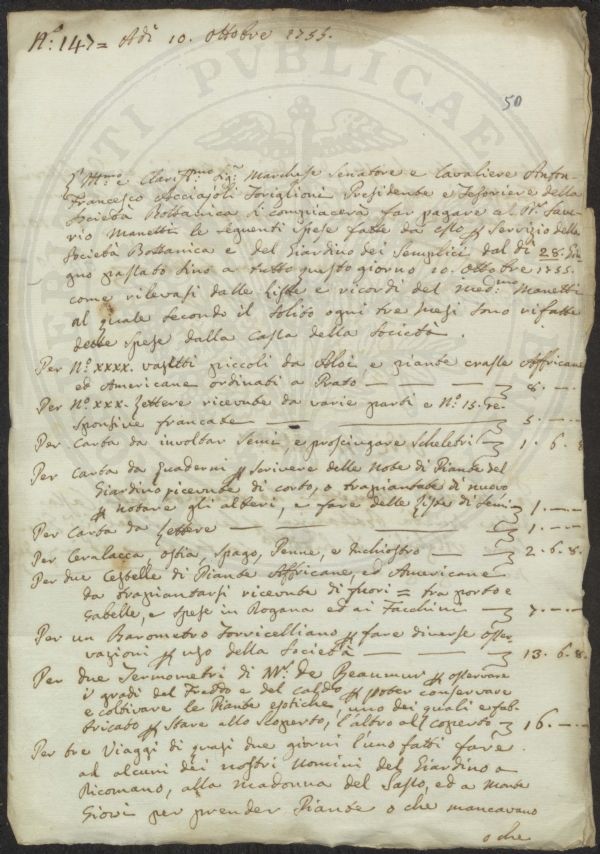 N.° 147 = Adì 10. Ottobre 1755.
50
L'Ill.mo e Clariss.mo Sig.r Marchese Senatore e Cavaliere Anton
Francesco Acciajoli Toriglioni Presidente e Tesoriere della
Società Bottanica si compiacerà far pagare al D.r Save-
rio Manetti le seguenti spese fatte da esso p servizio della
Società Bottanica e del Giardino dei Semplici dal dì 28. Giu-
gno passato sino a tutto questo giorno 10. Ottobre 1755.
come rilevasi dalle Liste e ricordi del med.mo Manetti
al quale secondo il solito ogni tre mesi sono rifatte
dette spese dalla Cassa della Società.
Per N.° xxxx. vasetti piccoli da Aloè e piante crasse Affricane
ed Americane ordinati a Prato — — — 8. —
Per N.° xxx. Lettere ricevute da varie parti e N.° 15. re-
sponsive francate — — 5. —
Per Carta da involtar Semi, e prosciugare Scheletri — 1. 6. 8
Per Carta da Quaderni p scrivere delle Note di Piante del
Giardino ricevute di corto, o trapiantate di nuovo
p notare gli alberi, e fare delle Liste di Semi — 1. —
Per Carta da Lettere — — — 1. —
Per Ceralacca, ostia, spago, Penne, e Inchiostro — — 2. 6. 8.
Per due Cestelle di Piante Affricane, ed Americane
da trapiantarsi ricevute di fuori = tra porto e
Gabelle, e spese in Dogana ed ai Facchini — 7. —
Per un Barometro Torricelliano p fare diverse osser-
vazioni p uso della Società — — 13. 6. 8.
Per due Termometri di M.r de Reaumur p osservare
i gradi del Freddo e del caldo p poter conservare
e coltivare le Piante esotiche, uno dei quali è fab-
bricato p stare allo scoperto, l'altro al coperto — 16. —
Per tre Viaggi di quasi due giorni l'uno fatti fare
ad alcuni dei nostri Uomini del Giardino a
Ricomano, alla Madonna del Sasso, ed a Monte
Giovi per prender Piante o che mancavano
o che